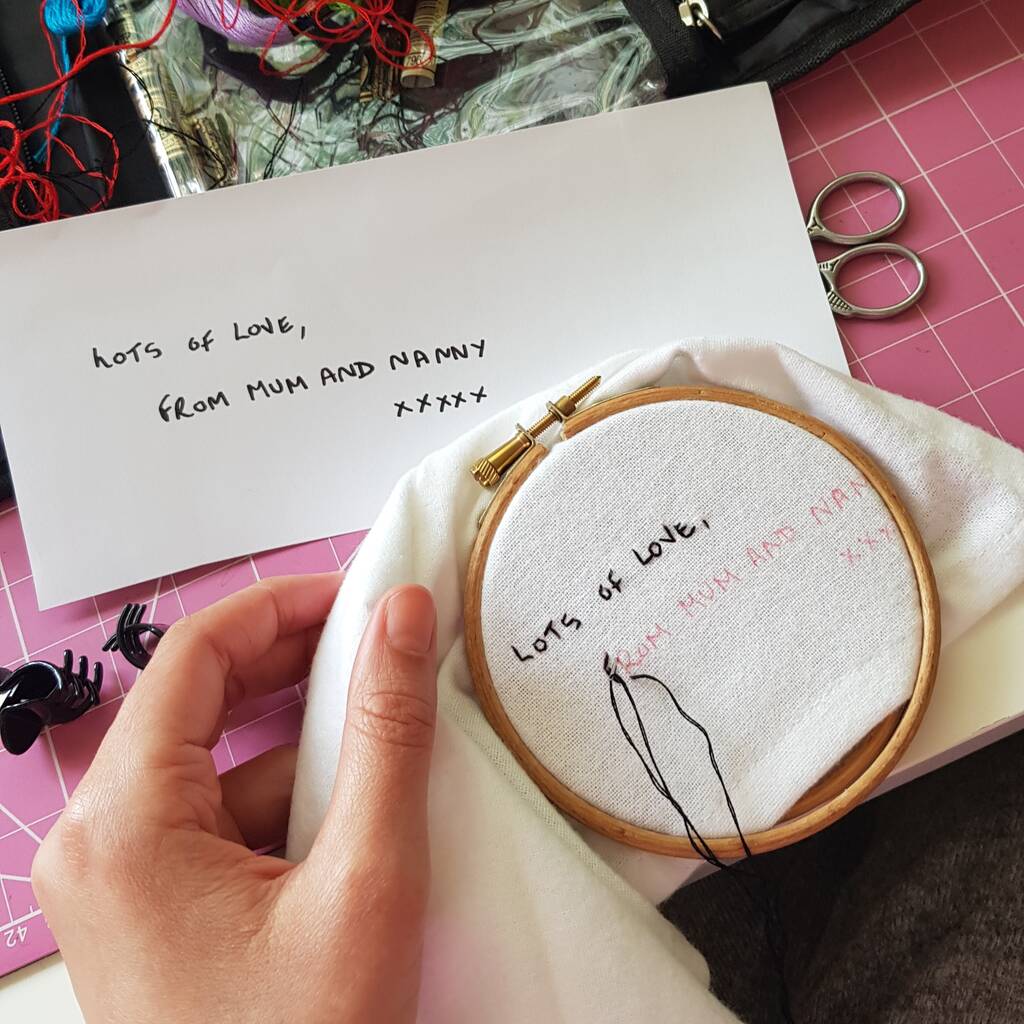 LOTS OF LOVE,
FROM MUM AND NANNY
xxxxx
LOTS OF LOVE,
FROM MUM AND NAN
xxx
42